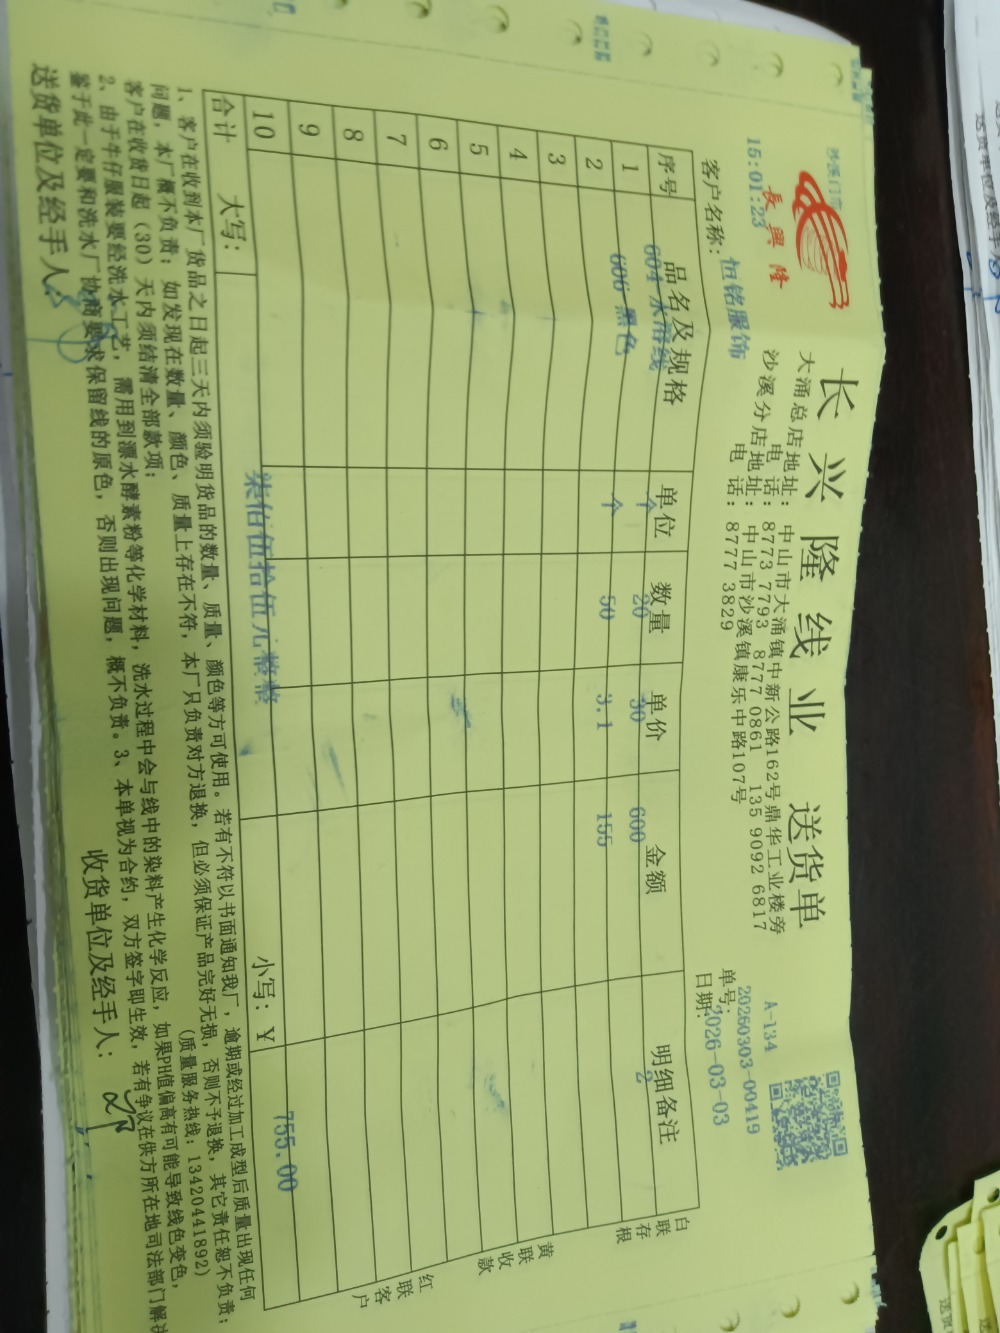 沙溪门市
15:01:23
長興隆
长兴隆线业 送货单
大涌总店地址: 中山市大涌镇中新公路162号鼎华工业楼旁
电 话: 8773 7793 8777 0861 135 9092 6817
沙溪分店地址: 中山市沙溪镇康乐中路107号
电 话: 8777 3829
A-134
单号: 20260303-00419
日期: 2026-03-03
客户名称: 恒铭服饰
序号 品名及规格 单位 数量 单价 金额 明细备注
1 604 水溶线 个 20 30 600 2
2 606 黑色 个 50 3.1 155
3
4
5
6
7
8
9
10
合计 大写: 柒佰伍拾伍元整整 小写: ¥ 755.00
白联存根
黄联收款
红联客户
1、客户在收到本厂货品之日起三天内须验明货品的数量、质量、颜色等方可使用。若有不符以书面通知我厂,逾期或经过加工成型后质量出现任何
问题,本厂概不负责;如发现在数量、颜色、质量上存在不符,本厂只负责对方退换,但必须保证产品完好无损,否则不予退换,其它责任恕不负责;
客户在收货日起(30)天内须结清全部款项; (质量服务热线:13420441892)
2、由于牛仔服装要经洗水工艺,需用到漂水酵素粉等化学材料,洗水过程中会与线中的染料产生化学反应,如果PH值偏高有可能导致线色变色,
鉴于此一定要和洗水厂协商要求保留线的原色,否则出现问题,概不负责。3、本单视为合约,双方签字即生效,若有争议在供方所在地司法部门解决
送货单位及经手人:
收货单位及经手人: